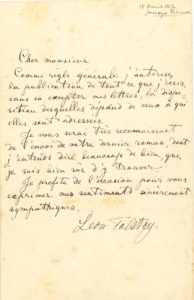 Cher monsieur
Comme règle générale j'autorise
la publication de tout ce que j'écris,
sans en compter mes lettres, la dispo-
sition desquelles dépend de ceux à qui
elles sont adressées.
Je vous serai très reconnaissant
de l'envoi de votre dernier roman, dont
j'entends dire beaucoup de bien, que
je suis bien sûr d'y trouver.
Je profite de l'occasion pour vous
exprimer mes sentiments sincèrement
sympathiques.
Léon Tolstoy.